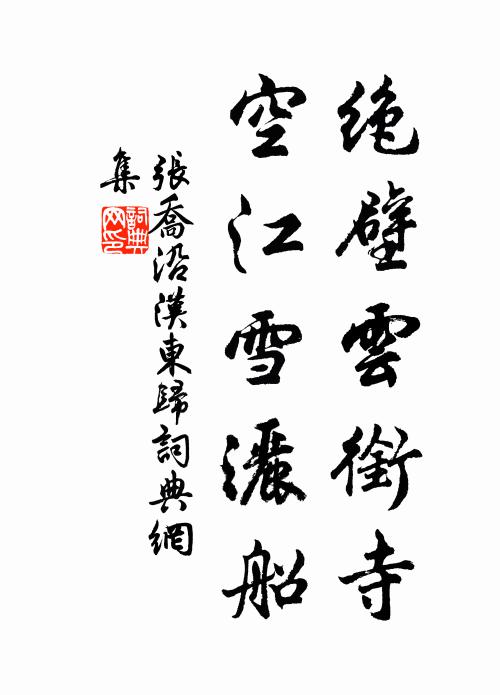 絶壁雲銜寺
空江雪灑船
張喬沿漢東歸詞典網
集
詞典
网印